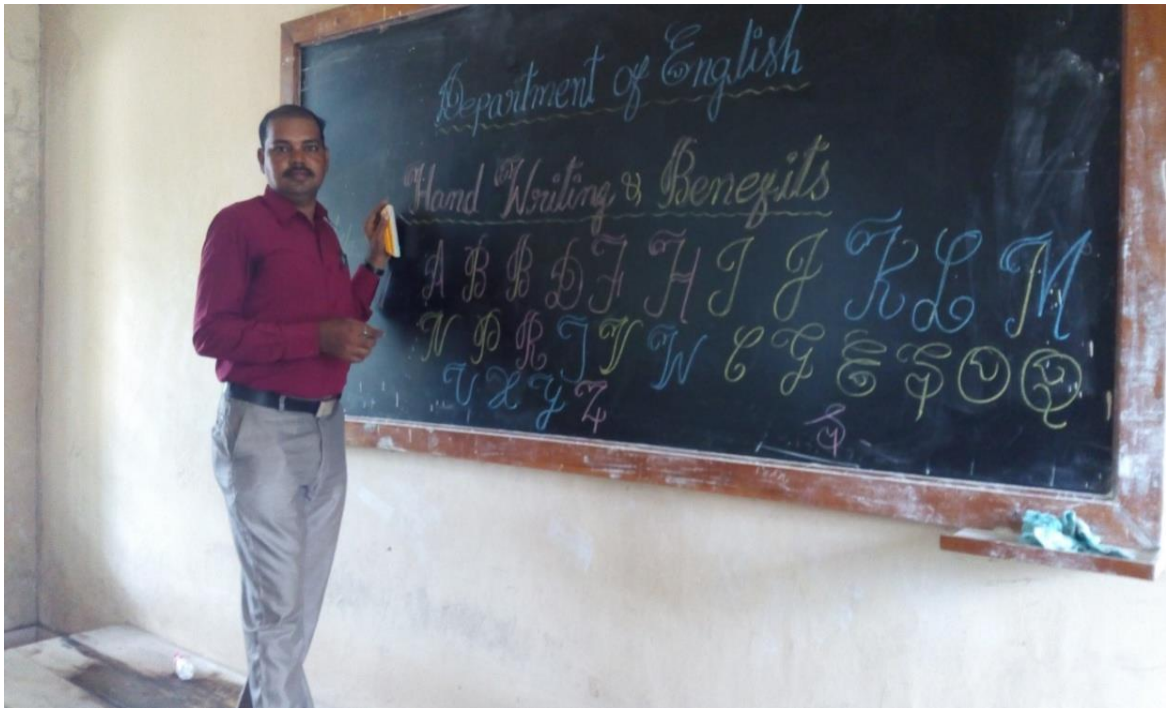 Department of English
Hand Writing & Benefits
A B B D F H I J K L M
N P R T V W C G E S O Q
U X Y Z